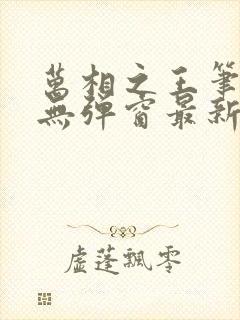 萬相之王筆
無彈窗最新
虛蓬飄零